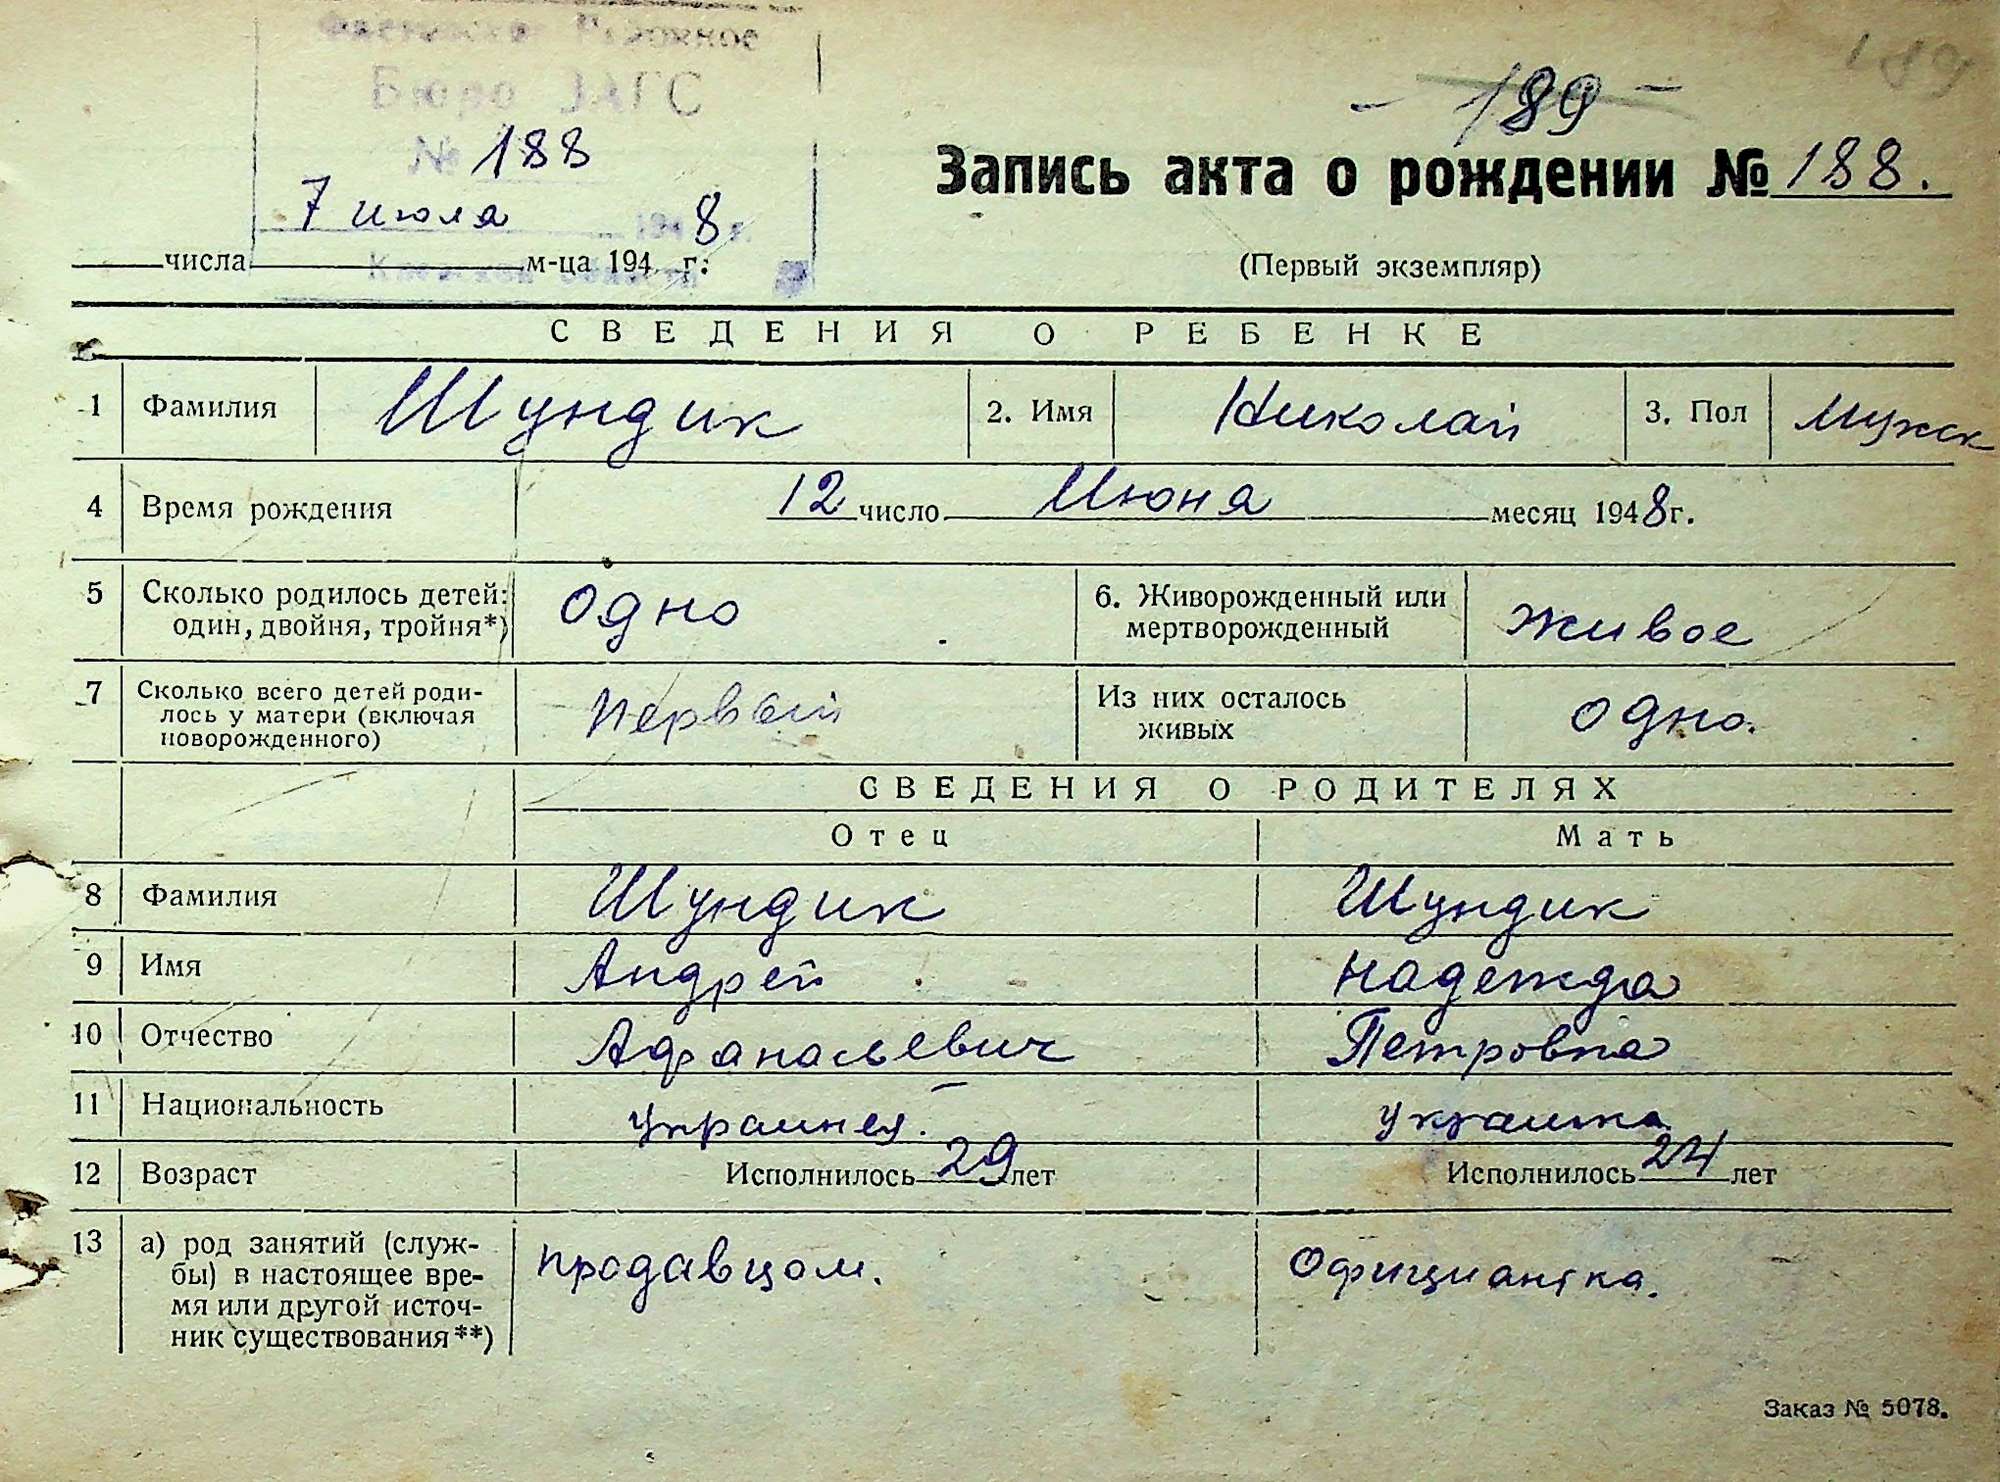 189
Районное
Бюро ЗАГС
- 189 -
№ 188
Запись акта о рождении № 188.
7 июля 1948 г.
числа м-ца 194 г.
Киевской области
(Первый экземпляр)
СВЕДЕНИЯ О РЕБЕНКЕ
1 Фамилия Шундик 2. Имя Николай 3. Пол Мужск
4 Время рождения 12 число Июня месяц 1948 г.
5 Сколько родилось детей: один, двойня, тройня*) Одно 6. Живорожденный или мертворожденный живое
7 Сколько всего детей роди-
лось у матери (включая
новорожденного) первый Из них осталось живых одно.
СВЕДЕНИЯ О РОДИТЕЛЯХ
Отец Мать
8 Фамилия Шундик Шундик
9 Имя Андрей Надежда
10 Отчество Афанасьевич Петровна
11 Национальность украинец. украинка
12 Возраст Исполнилось 29 лет Исполнилось 24 лет
13 а) род занятий (служ-
бы) в настоящее вре-
мя или другой источ-
ник существования**) продавцом. Официантка.
Заказ № 5078.